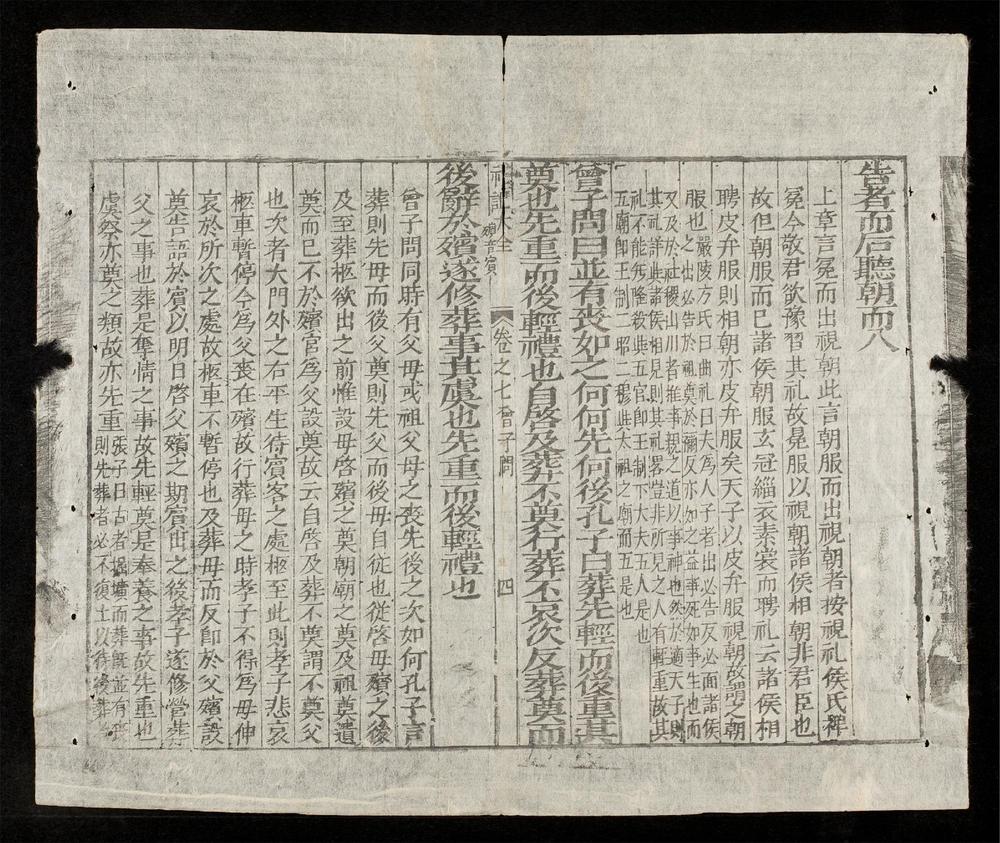 告者而后聽朝而入
上章言冕而出視朝此言朝服而出視朝者按覲礼侯氏裨
冕今敬君欲豫習其礼故冕服以視朝諸侯相朝非君臣也
故但朝服而已諸侯朝服玄冠緇衣素裳而聘礼云諸侯相
聘皮弁服則相朝亦皮弁服矣天子以皮弁服視朝故謂之朝
服也嚴陵方氏曰曲礼曰夫爲人子者出必告反必面諸侯
之出必告於祖奠於禰反亦如之益事死如事生也而
又及於社稷山川者推事親之道以事神也然於適天子則
其祀詳此諸侯相見則其祀畧豈非所見之人有輕重故其
礼不能无隆殺與五官即王制下大夫五人是也
五廟即王制二昭二穆與太祖之廟而五是也
曾子問曰並有喪如之何何先何後孔子曰葬先輕而後重其
奠也先重而後輕禮也自啓及葬不奠行葬不哀次反葬奠而
卷之七 曾子問 四
後辭於殯遂修葬事其虞也先重而後輕禮也
殯音賓
曾子問同時有父母或祖父母之喪先後之次如何孔子言
葬則先母而後父奠則先父而後母自從也從啓母殯之後
及至葬柩欲出之前惟設母啓殯之奠朝廟之奠及祖奠遣
奠而已不於殯宮爲父設奠故云自啓及葬不奠謂不奠父
也次者大門外之右平生待賓客之處柩至此則孝子悲哀
柩車暫停今爲父喪在殯故行葬母之時孝子不得爲母伸
哀於所次之處故柩車不暫停也及葬母而反即於父殯設
奠告語於賓以明日啓父殯之期賓出之後孝子遂修營葬
父之事也葬是奪情之事故先輕奠是奉養之事故先重也
虞祭亦奠之類故亦先重張子曰古者掘壙而葬旣並有喪
則先葬者必不復土以待後葬